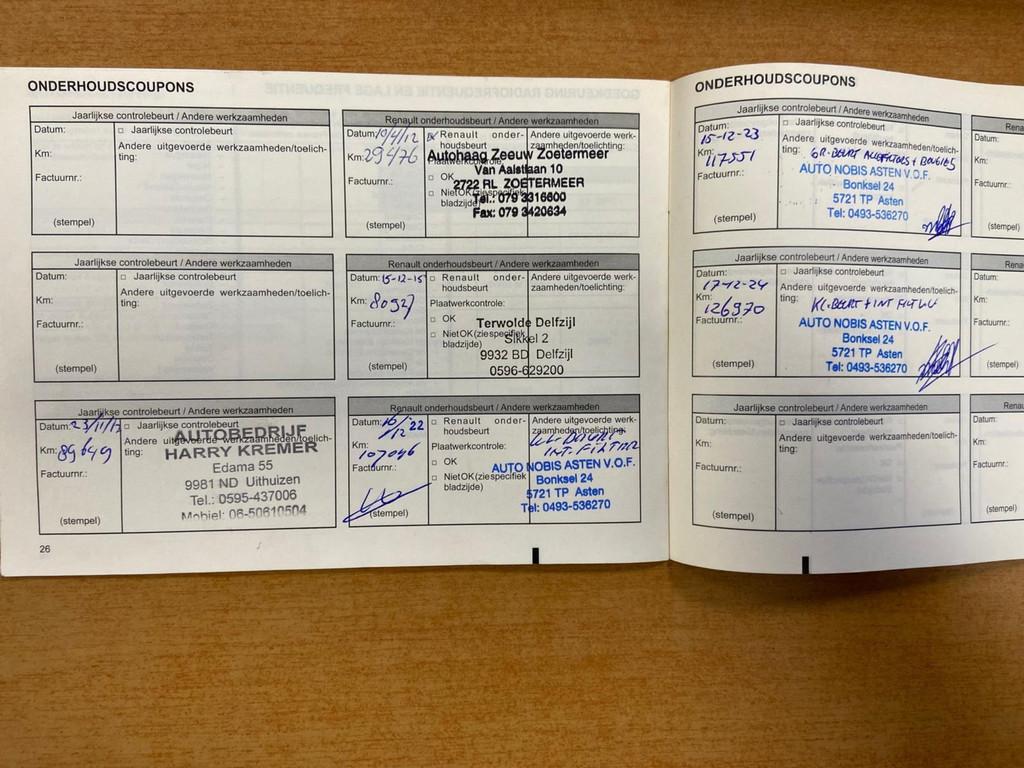 ONDERHOUDSCOUPONS
Jaarlijkse controlebeurt / Andere werkzaamheden
Datum:
□ Jaarlijkse controlebeurt
Km:
Andere uitgevoerde werkzaamheden/toelich-
ting:
Factuurnr.:
(stempel)
Renault onderhoudsbeurt / Andere werkzaamheden
Datum: 10/4/12
Renault onder-
houdsbeurt
Andere uitgevoerde werk-
zaamheden/toelichting:
Km: 29476
Plaatwerkcontrole:
□ OK
□ Niet OK (zie specifiek
bladzijde)
Factuurnr.:
Autohaag Zeeuw Zoetermeer
Van Aalstlaan 10
2722 RL ZOETERMEER
Tel.: 079 3316600
Fax: 079 3420634
(stempel)
Jaarlijkse controlebeurt / Andere werkzaamheden
Datum:
□ Jaarlijkse controlebeurt
Km:
Andere uitgevoerde werkzaamheden/toelich-
ting:
Factuurnr.:
(stempel)
Renault onderhoudsbeurt / Andere werkzaamheden
Datum: 15-12-15
□ Renault onder-
houdsbeurt
Andere uitgevoerde werk-
zaamheden/toelichting:
Km: 80927
Plaatwerkcontrole:
□ OK
□ Niet OK (zie specifiek
bladzijde)
Factuurnr.:
Terwolde Delfzijl
Sikkel 2
9932 BD Delfzijl
0596-629200
(stempel)
Jaarlijkse controlebeurt / Andere werkzaamheden
Datum: 23/11/17
□ Jaarlijkse controlebeurt
Km: 89649
Andere uitgevoerde werkzaamheden/toelich-
ting:
Factuurnr.:
AUTOBEDRIJF
HARRY KREMER
Edama 55
9981 ND Uithuizen
Tel.: 0595-437006
Mobiel: 06-50610504
(stempel)
Renault onderhoudsbeurt / Andere werkzaamheden
Datum: 16/12 22
□ Renault onder-
houdsbeurt
Andere uitgevoerde werk-
zaamheden/toelichting:
Km: 107046
Plaatwerkcontrole:
□ OK
□ Niet OK (zie specifiek
bladzijde)
Factuurnr.:
KL. BEURT
INT. FILTER
AUTO NOBIS ASTEN V.O.F.
Bonksel 24
5721 TP Asten
Tel: 0493-536270
(stempel)
26
ONDERHOUDSCOUPONS
Jaarlijkse controlebeurt / Andere werkzaamheden
Datum: 15-12-23
□ Jaarlijkse controlebeurt
Km: 117551
Andere uitgevoerde werkzaamheden/toelich-
ting: GR. BEURT ALLE FILTERS + BOUGIES
Factuurnr.:
AUTO NOBIS ASTEN V.O.F.
Bonksel 24
5721 TP Asten
Tel: 0493-536270
(stempel)
Jaarlijkse controlebeurt / Andere werkzaamheden
Datum: 17-12-24
□ Jaarlijkse controlebeurt
Km: 126970
Andere uitgevoerde werkzaamheden/toelich-
ting: KL. BEURT + INT FILTER
Factuurnr.:
AUTO NOBIS ASTEN V.O.F.
Bonksel 24
5721 TP Asten
Tel: 0493-536270
(stempel)
Jaarlijkse controlebeurt / Andere werkzaamheden
Datum:
□ Jaarlijkse controlebeurt
Km:
Andere uitgevoerde werkzaamheden/toelich-
ting:
Factuurnr.:
(stempel)
Datum:
Km:
Factuurnr.:
(stempel)
Datum:
Km:
Factuurnr.:
(stempel)
Datum:
Km:
Factuurnr.:
(stempel)